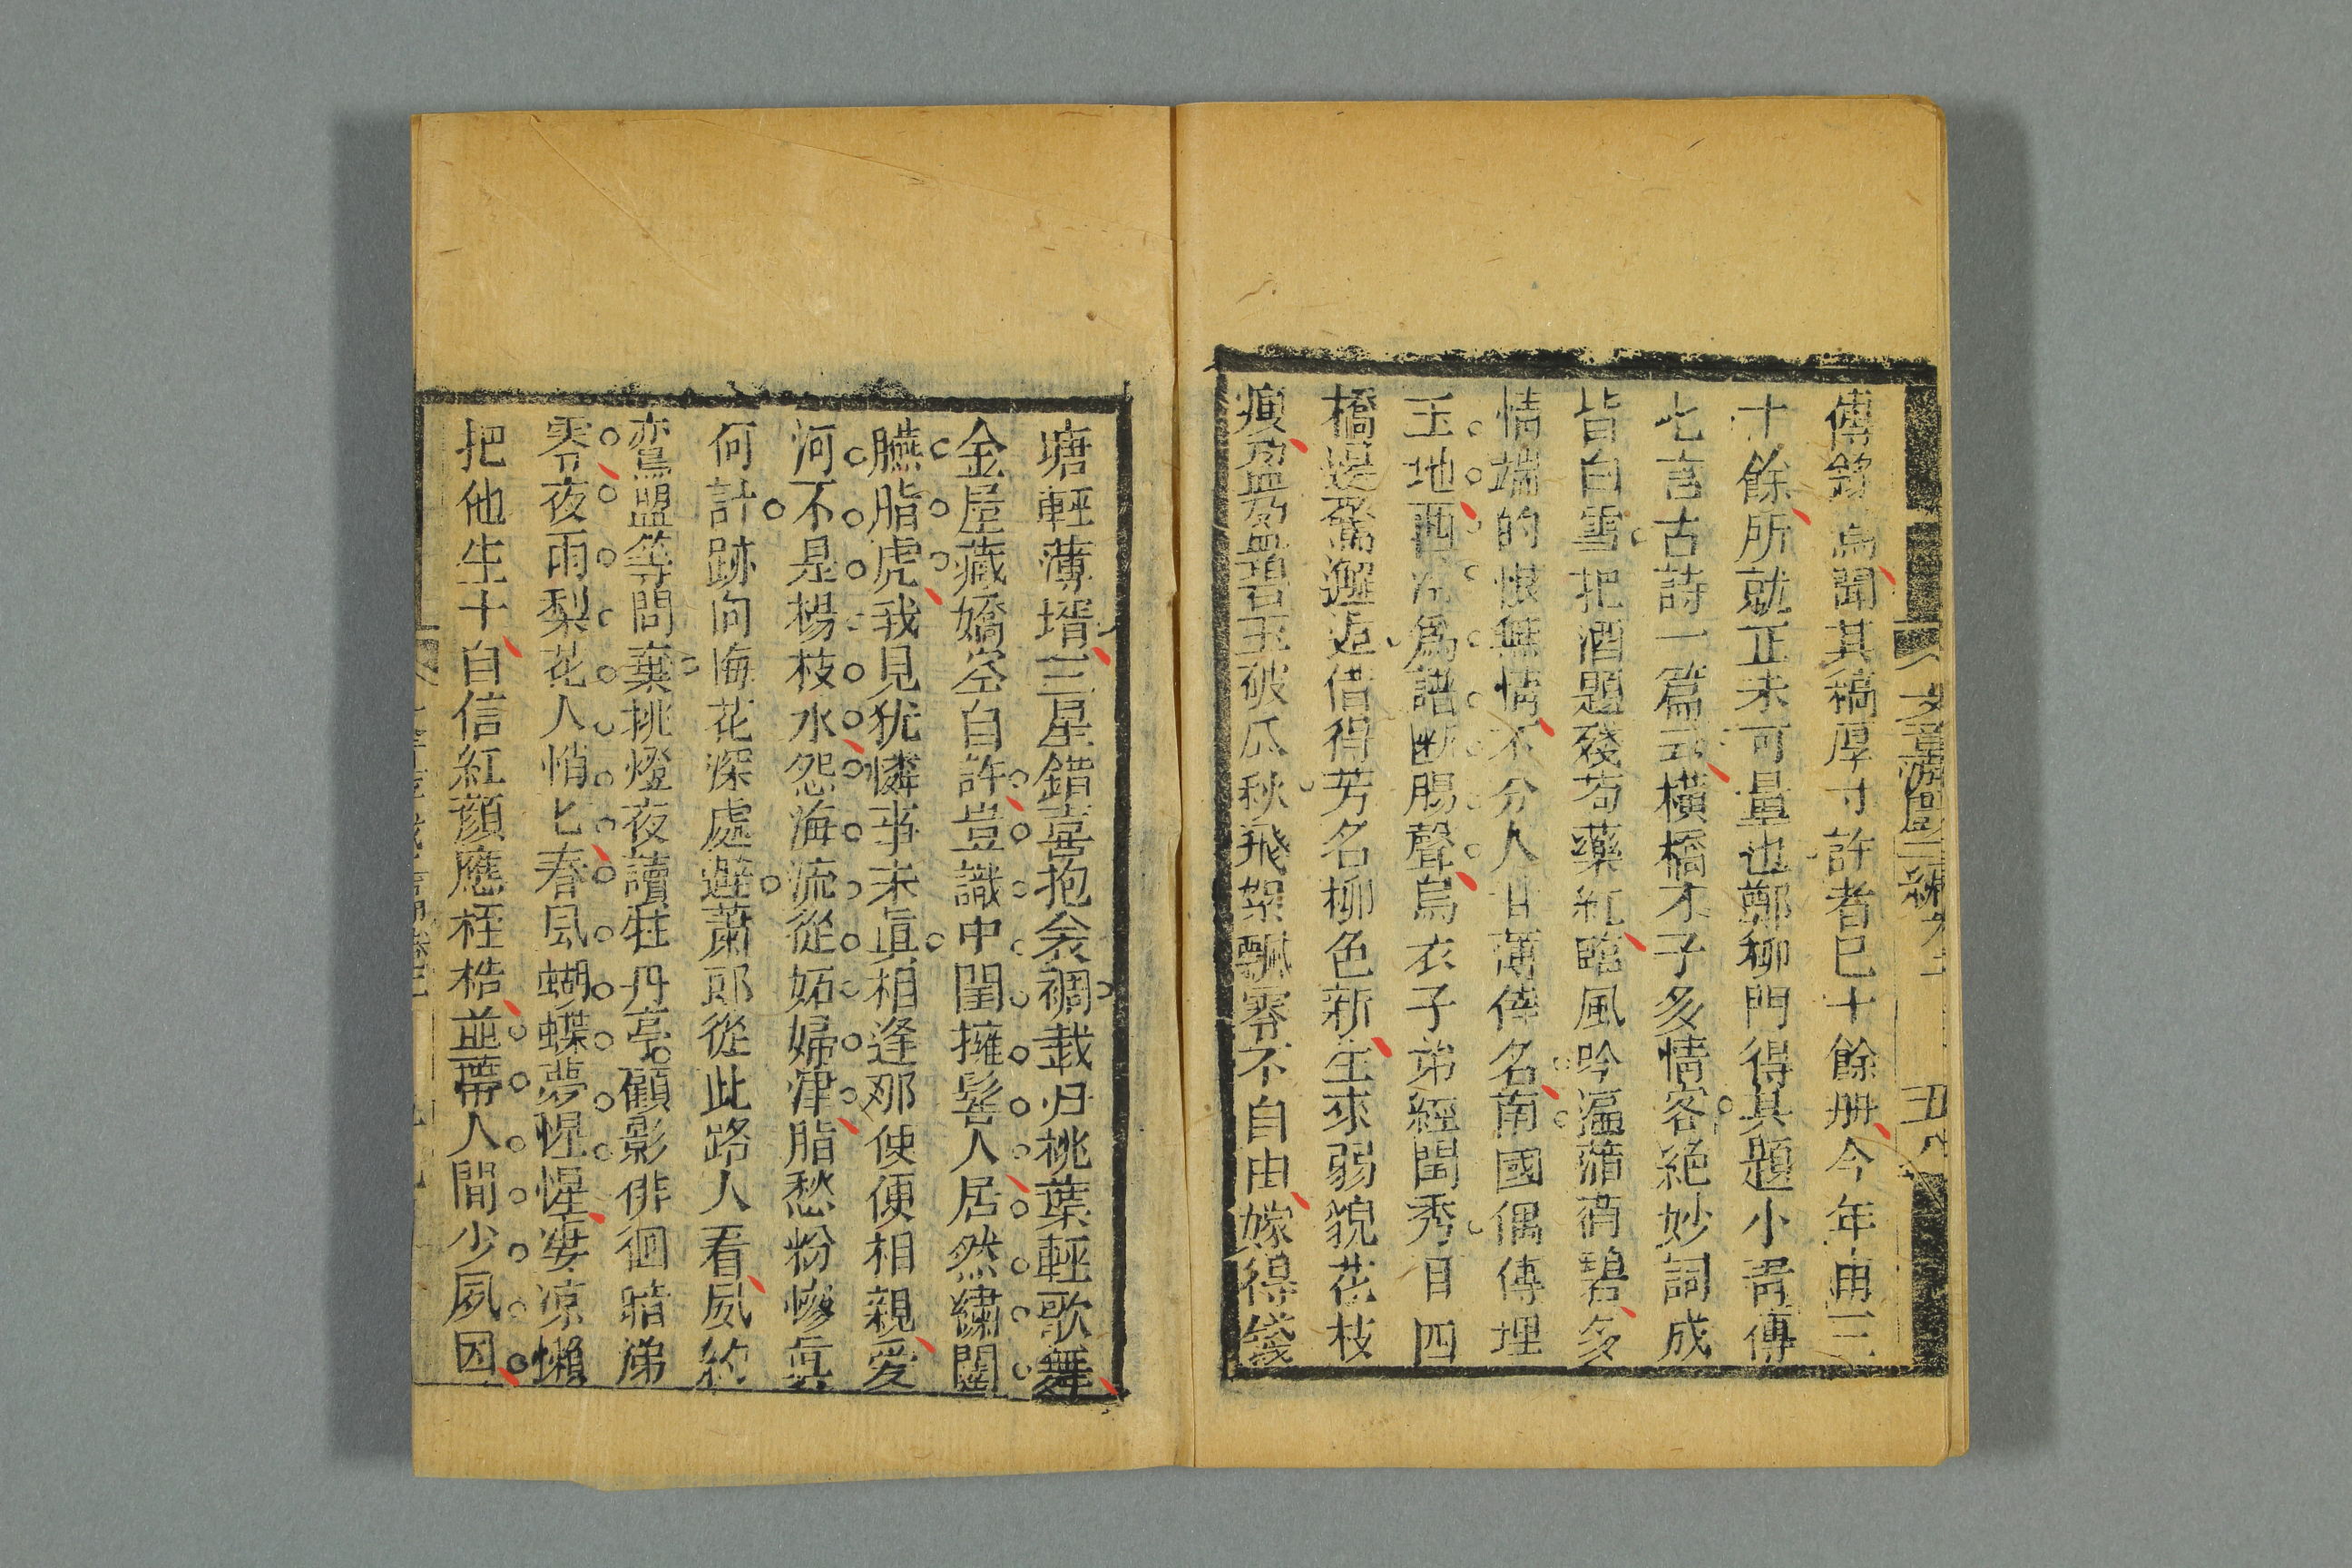 傳奇焉聞其稿厚寸許者已十餘册今年甫三
十餘所就正未可量也鄭柳門得其題小青傳
七言古詩一篇云橫橋才子多情客絶妙詞成
皆白雪把酒題殘芍藥紅臨風吟瘟蒲萄碧多
情端的恨無情不分人甘薄倖名南國偶傳埋
玉地西泠爲譜斷腸聲烏衣子弟經閨秀目四
橋邊驚邂逅借得芳名柳色新生來弱貌花枝
瘦盈盈碧玉破瓜秋飛絮飄零不自由嫁得錢
塘輕薄壻三星錯喜抱衾裯載归桃葉輕歌舞
金屋藏嬌空自許豈識中閨擁髻人居然繡闥
臙脂虎我見犹憐事未眞相逢那使便相親愛
河不是楊枝水怨海流從妬婦津脂愁粉慘眞
何計跡向梅花深處避蕭郎從此路人看夙約
鴛盟等閒棄挑燈夜讀牡丹亭顧影徘徊暗涕
零夜雨梨花人悄匕春風蝴蝶夢惺惺淒凉懶
把他生卜自信紅顏應桎梏並蒂人間少夙因